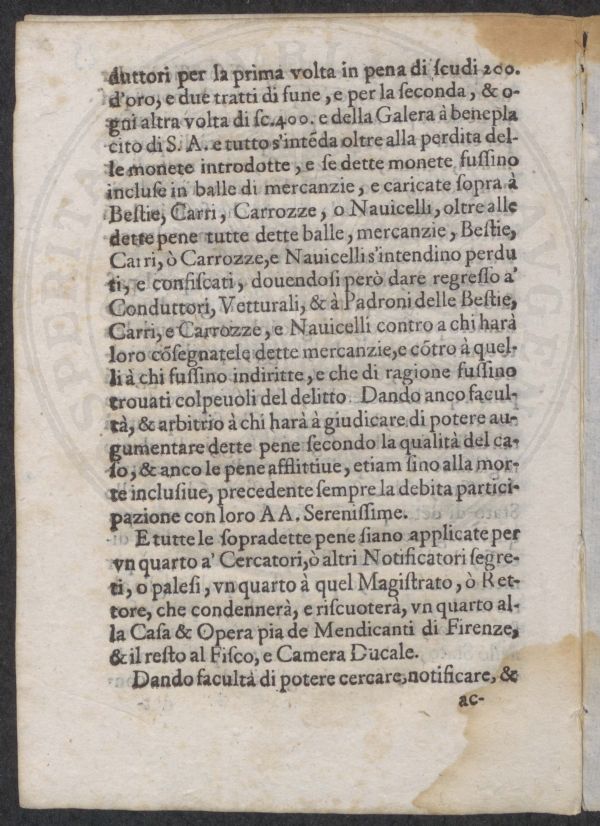 duttori per la prima volta in pena di ſcudi 200.
d'oro, e due tratti di fune, e per la ſeconda, & o-
gni altra volta di ſc.400. e della Galera à benepla
cito di S. A. e tutto s'intẽda oltre alla perdita del-
le monete introdotte, e ſe dette monete fuſſino
incluſe in balle di mercanzie, e caricate ſopra à
Beſtie, Carri, Carrozze, o Nauicelli, oltre alle
dette pene tutte dette balle, mercanzie, Beſtie,
Carri, ò Carrozze, e Nauicelli s'intendino perdu
ti, e confiſcati, douendoſi però dare regreſſo a'
Conduttori, Vetturali, & à Padroni delle Beſtie,
Carri, e Carrozze, e Nauicelli contro a chi harà
loro cõſegnatele dette mercanzie, e cõtro à quel-
li à chi fuſſino indiritte, e che di ragione fuſſino
trouati colpeuoli del delitto. Dando anco facul-
tà, & arbitrio à chi harà à giudicare di potere au-
gumentare dette pene ſecondo la qualità del ca-
ſo, & anco le pene afflittiue, etiam ſino alla mor-
te incluſiue, precedente ſempre la debita partici-
pazione con loro A A. Sereniſſime.
E tutte le ſopradette pene ſiano applicate per
vn quarto a' Cercatori, ò altri Notificatori ſegre-
ti, o paleſi, vn quarto à quel Magiſtrato, ò Ret-
tore, che condennerà, e riſcuoterà, vn quarto al-
la Caſa & Opera pia de Mendicanti di Firenze,
& il reſto al Fiſco, e Camera Ducale.
Dando facultà di potere cercare, notificare, &
ac-